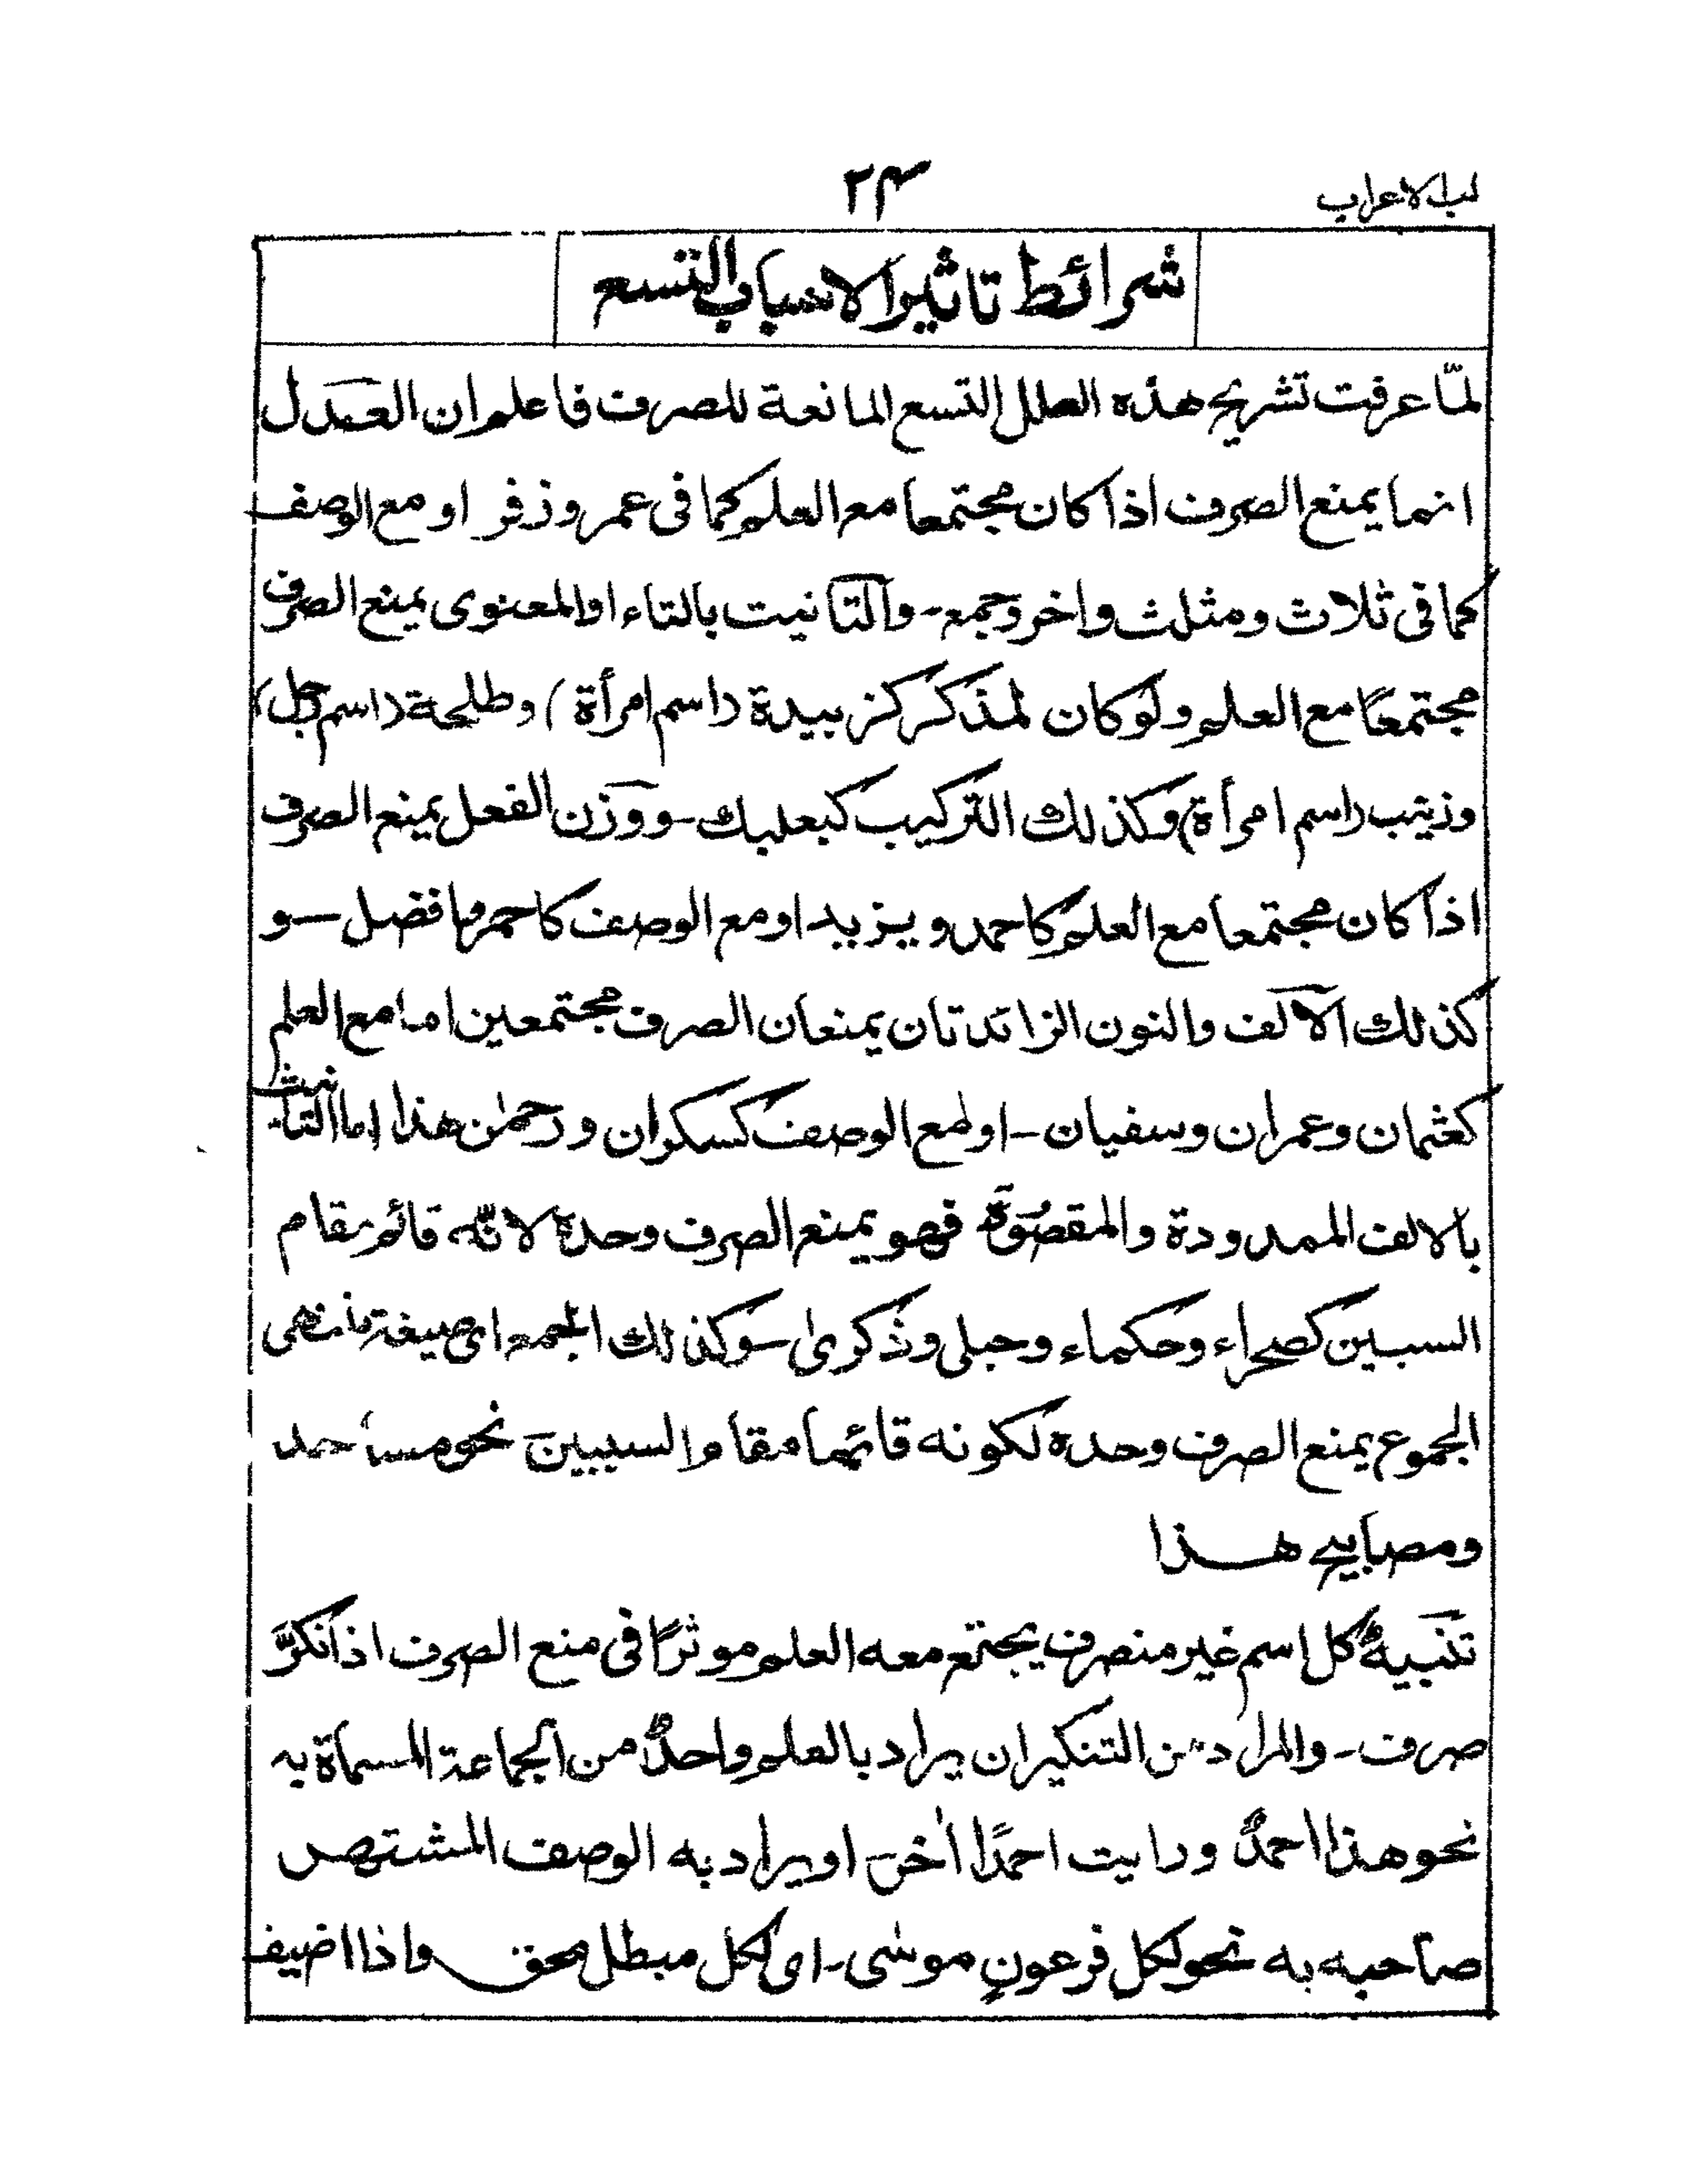 لب الاعراب
۲۴
شرائط تاثير الاسباب التسع
لمّا عرفت تشريح هذه العلل التسع المانعة للصرف فاعلم ان العدل
انما يمنع الصرف اذا كان مجتمعا مع العلم كما فى عمر وزفر او مع الوصف
كما فى ثلاث ومثلث واخر وجمع ـ والتانيث بالتاء او المعنوى يمنع الصرف
مجتمعًا مع العلم ولو كان لمذكر كزبيدة (اسم امرأة) وطلحة (اسم رجل)
وزينب (اسم امرأة) وكذلك التركيب كبعلبك ـ ووزن الفعل يمنع الصرف
اذا كان مجتمعا مع العلم كاحمد ويزيد او مع الوصف كاحمر وافضل ـ و
كذلك الالف والنون الزائدتان يمنعان الصرف مجتمعين اما مع العلم
كعثمان وعمران وسفيان ـ او مع الوصف كسكران ورحمٰن هذا اما التانيث
بالالف الممدودة والمقصورة فهو يمنع الصرف وحده لانّه قائم مقام
السببين كصحراء وحكماء وحبلى وذكرىٰ ـ وكذلك الجمع اى صيغة منتهى
الجموع يمنع الصرف وحده لكونه قائما مقام السببين نحو مساجد
ومصابيح هذا
تنبيهٌ كل اسم غير منصرف يجتمع معه العلم موثرًا فى منع الصرف اذا نكرّ
صرف ـ والمراد من التنكير ان يراد بالعلم واحدٌ من الجماعة المسماة به
نحو هذا احمدٌ ورايت احمدًا اٰخر او يراد به الوصف المشتهر
صاحبه به نحو لكل فرعونٍ موسٰى ـ اى لكل مبطل محق واذا اضيف